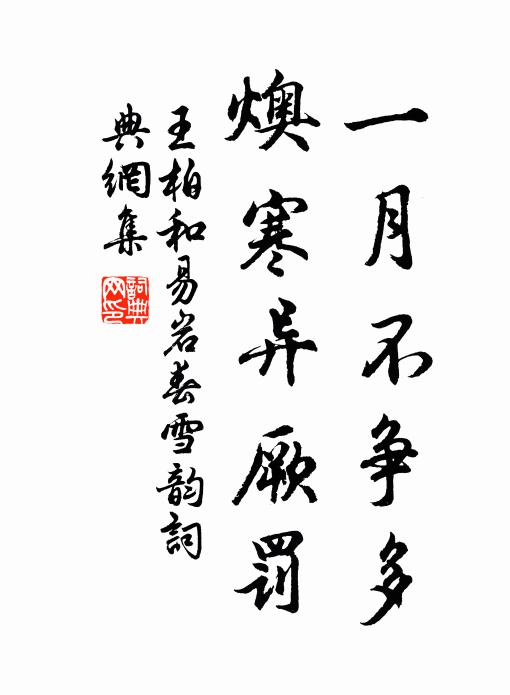 一月不争多
燠寒异厥罚
王柏和易岩春雪韵詞
典網集
詞典网印